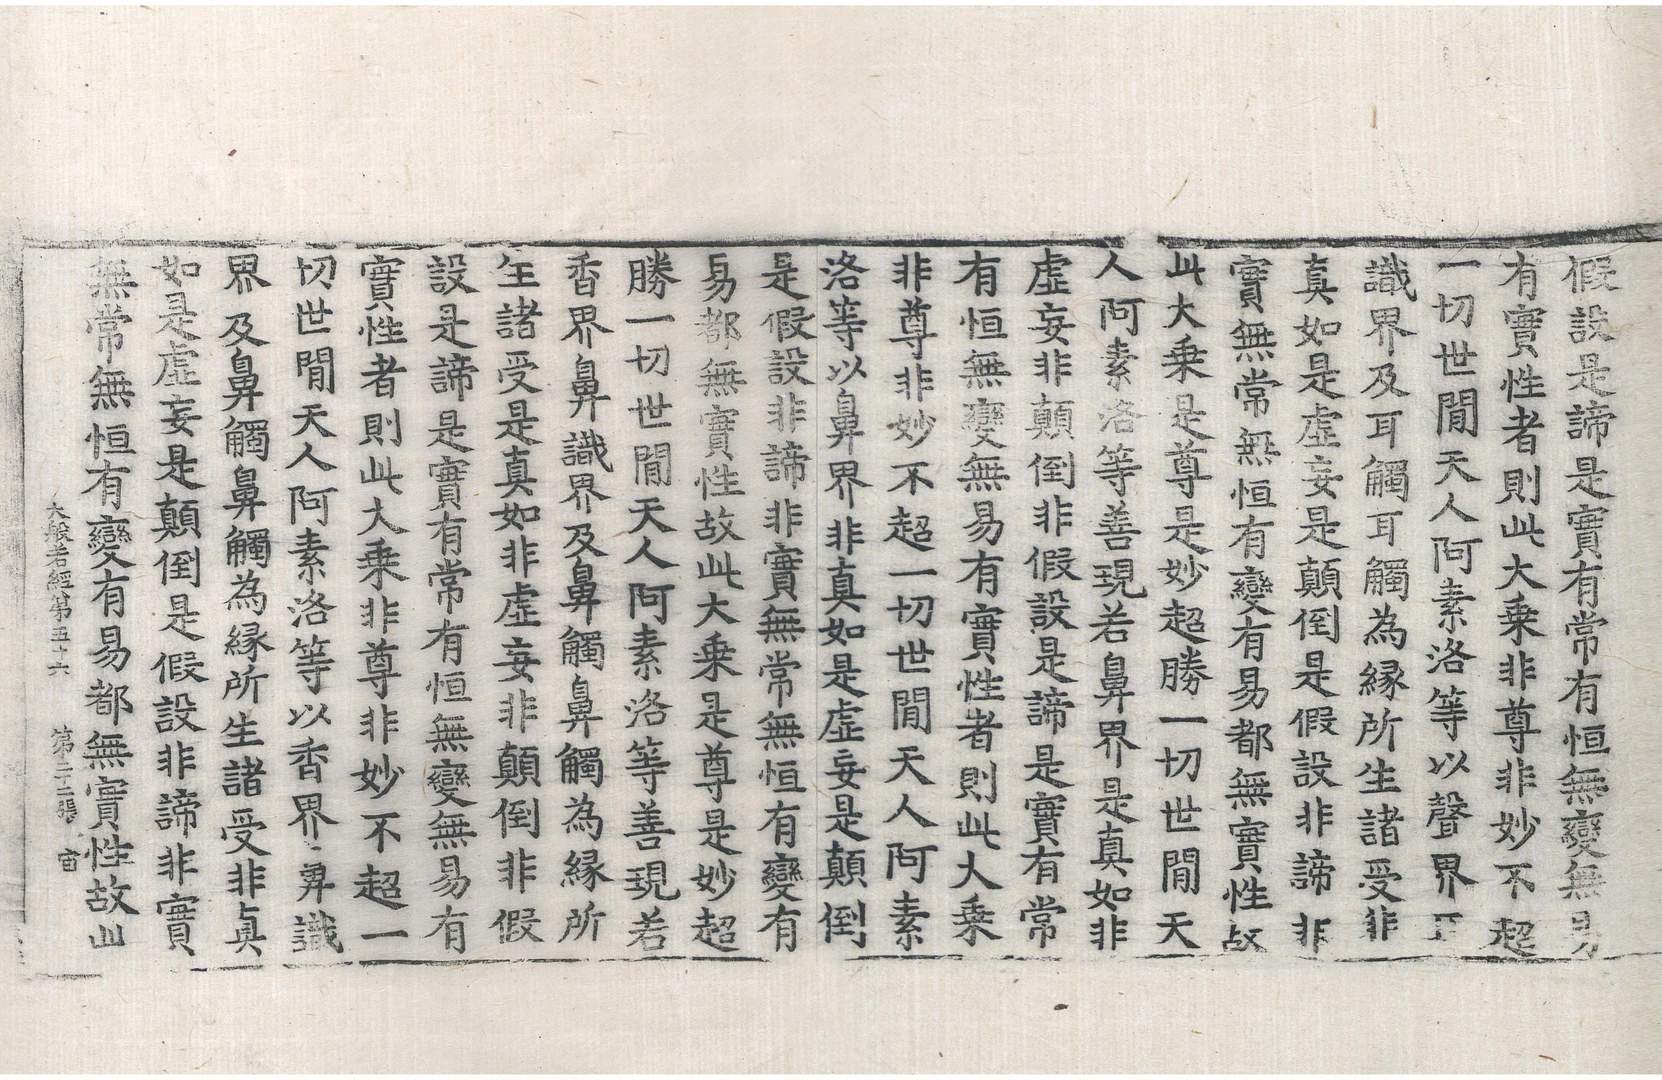 假設是諦是實有常有恒無變無易
有實性者則此大乗非尊非妙不超
一切世間天人阿素洛等以聲界耳
識界及耳觸耳觸為縁所生諸受非
真如是虛妄是顛倒是假設非諦非
實無常無恒有變有易都無實性故
此大乗是尊是妙超勝一切世間天
人阿素洛等善現若鼻界是真如非
虛妄非顛倒非假設是諦是實有常
有恒無變無易有實性者則此大乗
非尊非妙不超一切世間天人阿素
洛等以鼻界非真如是虛妄是顛倒
是假設非諦非實無常無恒有變有
易都無實性故此大乗是尊是妙超
勝一切世間天人阿素洛等善現若
香界鼻識界及鼻觸鼻觸為縁所
生諸受是真如非虛妄非顛倒非假
設是諦是實有常有恒無變無易有
實性者則此大乗非尊非妙不超一
切世間天人阿素洛等以香界鼻識
界及鼻觸鼻觸為縁所生諸受非真
如是虛妄是顛倒是假設非諦非實
無常無恒有變有易都無實性故此
大般若經第五十六 第二十二張 宙